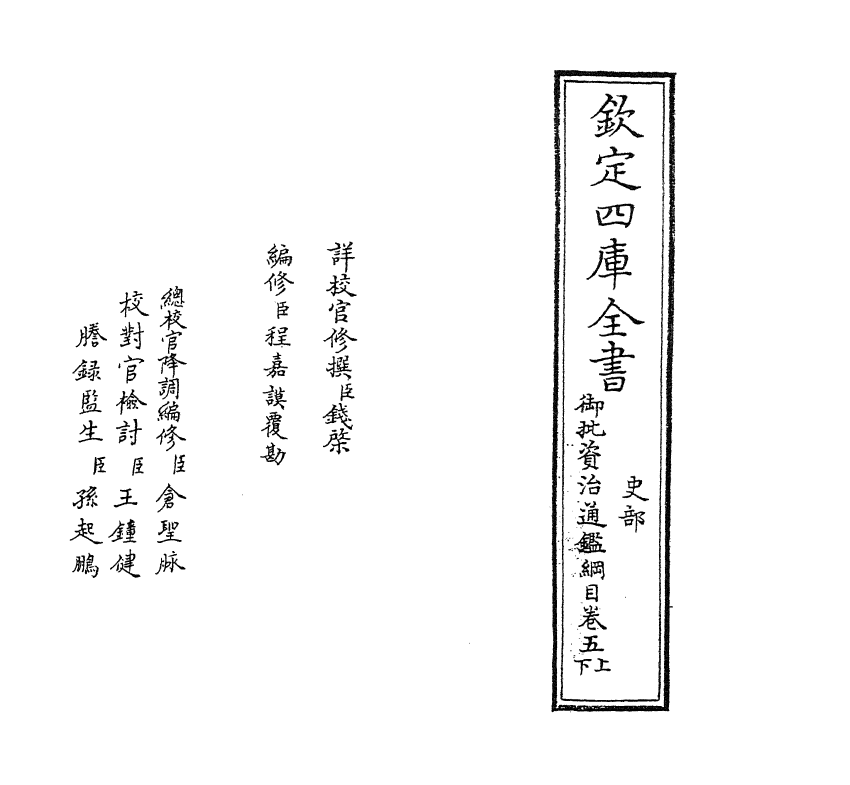 欽定四庫全書
史部
御批資治通鑑綱目卷五上下
詳校官修撰臣錢棨
編修臣程嘉謨覆勘
總校官降調編修臣倉聖脈
校對官檢討臣王鐘健
謄錄監生臣孫起鵬